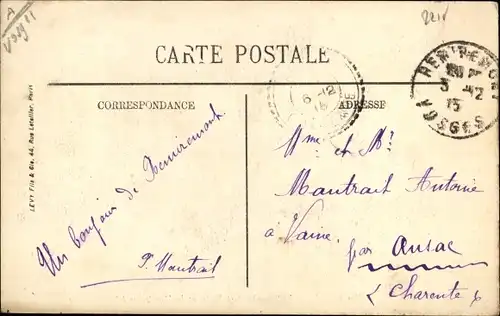 CARTE POSTALE
CORRESPONDANCE
ADRESSE
LÉVY Fils & Cie, 44, Rue Letellier, Paris
REMIREMONT
3 -12
15
VOSGES
6 -12
15
Un bonjour de Remiremont
P. Mautrait
Mme et Mr
Mautrait Antoine
à Vaine
par Ansac
Charente